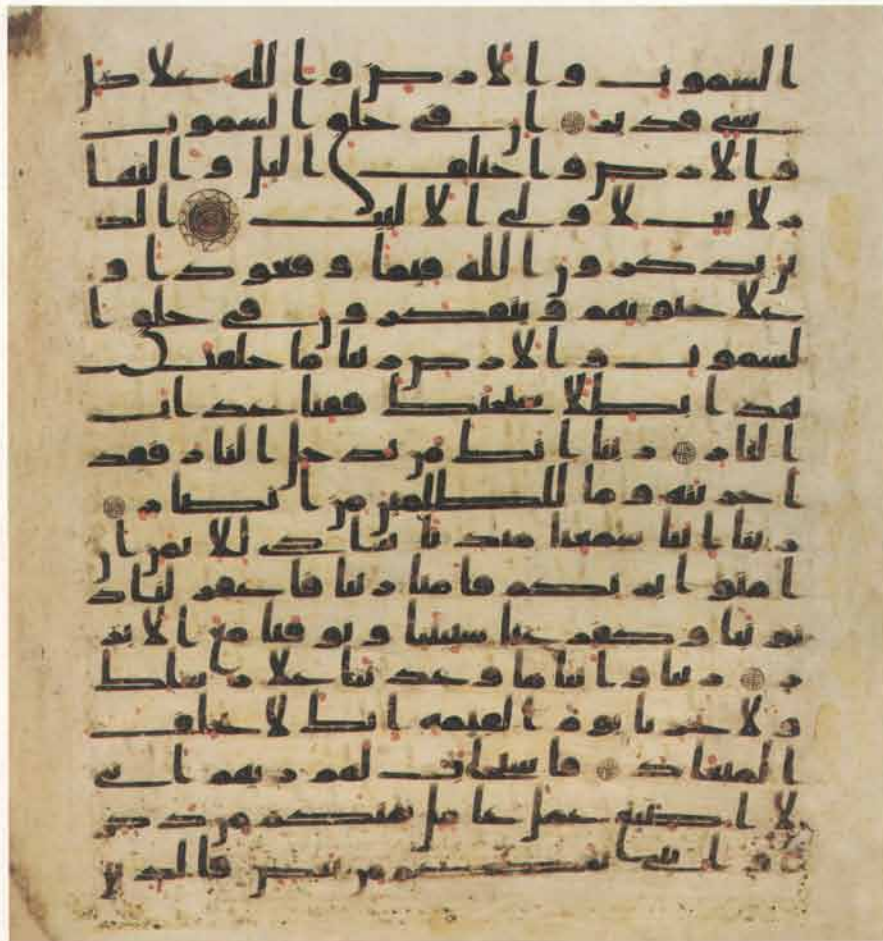 السموت والارض والله علا كل
شي قدير ان في خلق السموت
والارض واختلف اليل والنها
ر لايت لاولي الالبب الذ
ين يذكرون الله قيما وقعودا و
علا جنوبهم ويتفكرون في خلق ا
لسموت والارض ربنا ما خلقت
هذا بطلا سبحنك فقنا عذاب
النار ربنا انك من تدخل النار فقد
اخزيته وما للظلمين من انصار
ربنا اننا سمعنا مناديا ينادي للايمن ان
امنوا بربكم فامنا ربنا فاغفر لنا ذ
نوبنا وكفر عنا سيتنا وتوفنا مع الابر
ر ربنا واتنا ما وعدتنا علا رسلك
ولا تخزنا يوم القيمه انك لا تخلف
الميعاد فاستجاب لهم ربهم اني
لا اضيع عمل عمل منكم من ذكر
او انثى بعضكم من بعض فالذي